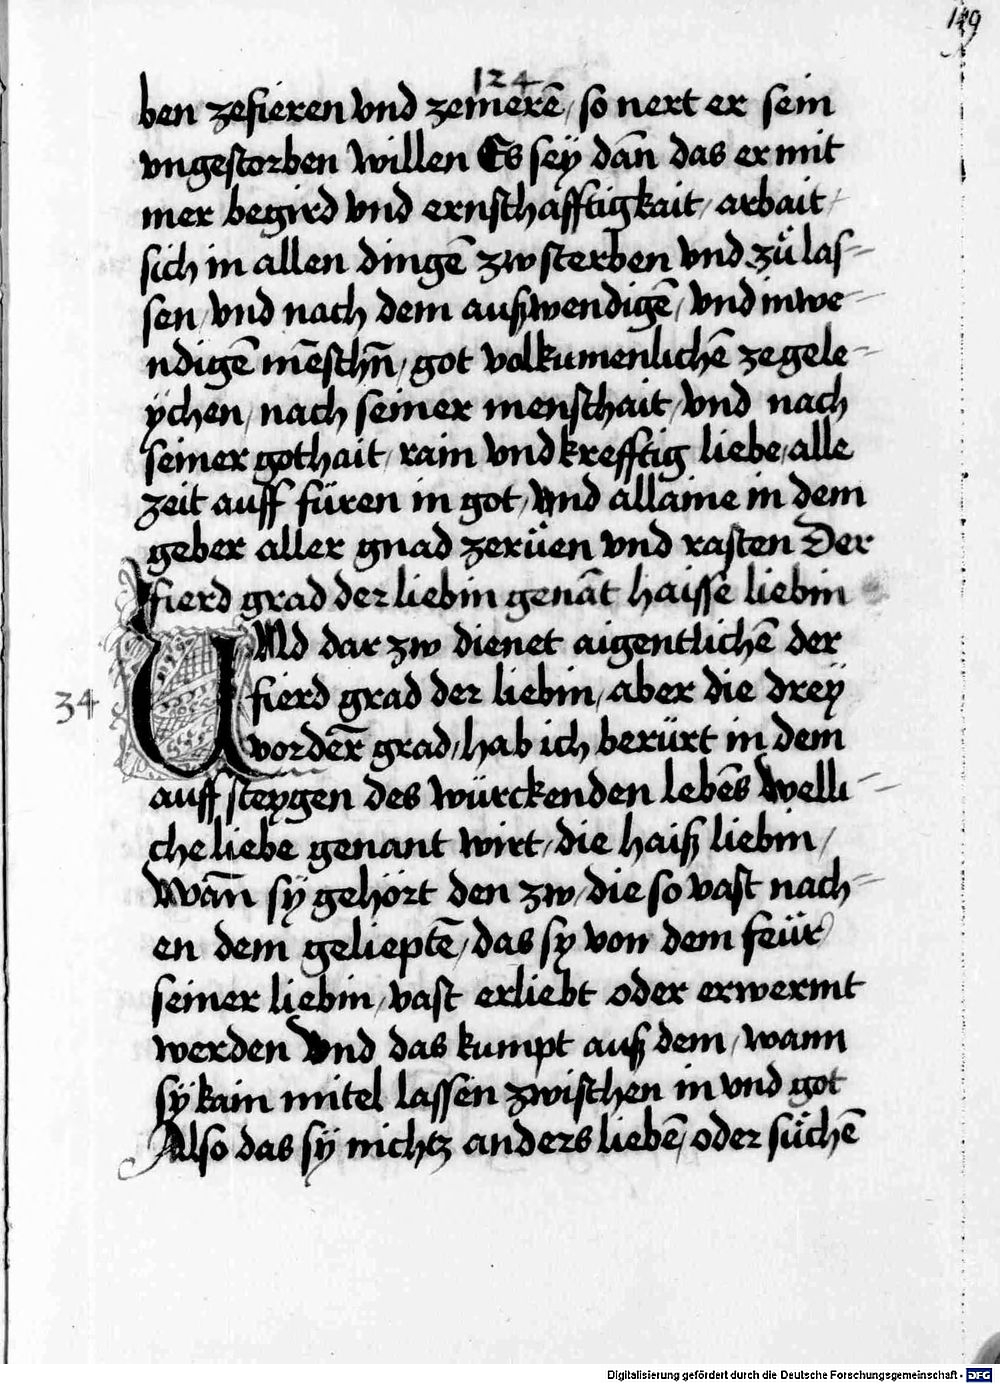 149
124
ben zefieren vnd zemerē / so nert er sein
vngestorben willen Es seÿ dān das er mit
mer begird vnd ernsthafftigkait / arbait /
sich in allen dingē zw sterben vnd zů las-
sen / vnd nach dem außwendigē / vnd inwe-
ndigē mēschn̄ / got volkumenlichē zegele-
ÿchen / nach seiner menschait / vnd nach
seiner gothait / rain vnd krefftig liebe / alle
zeit auff füren in got / vnd allaine in dem
geber aller gnad zerüen vnd rasten Der
fierd grad der liebin genāt haisse liebin
UNd dar zw dienet aigentlichē der
34
fierd grad der liebin / aber die dreÿ
vorder̄ grad / hab ich berürt in dem
auff steygen des würckenden lebēs Welli-
che liebe genant wirt / die haiß liebin /
Wān sÿ gehört den zw / die so vast nach-
en dem gelieptē / das sy von dem feür
seiner liebin / vast erliebt oder erwermt
werden Vnd das kumpt auß dem / wann
sÿ kain mitel lassen zwischen in vnd got
Also das sÿ nichtz anders liebē / oder sůchē
Digitalisierung gefördert durch die Deutsche Forschungsgemeinschaft - DFG